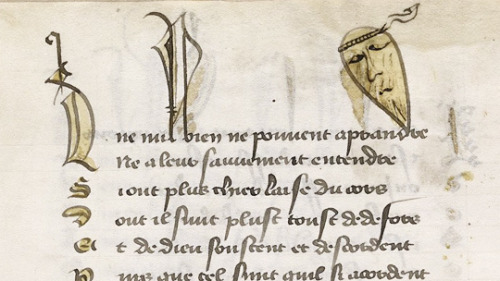 Que nul bien ne pouuent aprandre
Ne a leur sauuement entendre
Si ont plus chier laise du cors
Dont il sunt plust toust de defors
Et de dieu soustent et descordent
que tel sunt quil si acordent